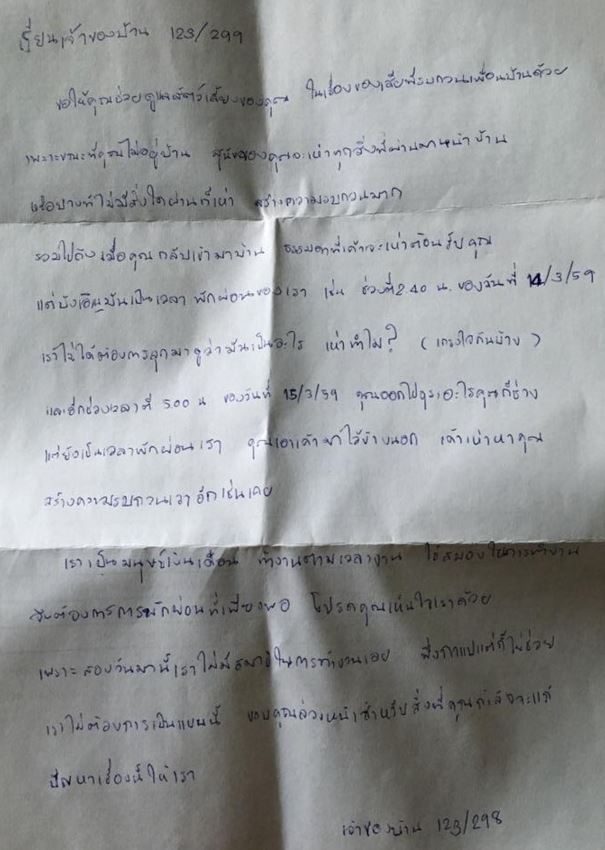 เรียนเจ้าของบ้าน 123/299
ขอให้คุณช่วยดูแลสัตว์เลี้ยงของคุณ ในเรื่องของเสียงที่รบกวนเพื่อนบ้านด้วย
เพราะขณะที่คุณไม่อยู่บ้าน สุนัขของคุณจะเห่าทุกสิ่งที่ผ่านมาหน้าบ้าน
หรือบางทีไม่มีสิ่งใดผ่านก็เห่า สร้างความรบกวนมาก
รวมไปถึงเมื่อคุณกลับเข้ามาบ้าน ธรรมดาที่เค้าจะเห่าต้อนรับคุณ
แต่บังเอิญมันเป็นเวลาพักผ่อนของเรา เช่น ช่วงตี2.40 น. ของวันที่ 14/3/59
เราไม่ได้ต้องการลุกมาดูว่ามันเป็นอะไร เห่าทำไม? (เกรงใจกันบ้าง)
และอีกช่วงเวลาตี 5.00 น ของวันที่ 15/3/59 คุณออกไปธุระอะไรคุณก็ช่าง
แต่ยังเป็นเวลาพักผ่อนเรา คุณเอาเค้ามาไว้ข้างนอก เค้าเห่าหาคุณ
สร้างความรบกวนเราอีกเช่นเคย
เราเป็นมนุษย์เงินเดือน ทำงานตามเวลางาน ใช้สมองในการทำงาน
จึงต้องการการพักผ่อนที่เพียงพอ โปรดคุณเห็นใจเราด้วย
เพราะสองวันมานี้เราไม่มีสมาธิในการทำงานเลย พึ่งกาแฟแต่ก็ไม่ช่วย
เราไม่ต้องการเป็นแบบนี้ ขอบคุณล่วงหน้าสำหรับสิ่งที่คุณกำลังจะแก้
ปัญหาเรื่องนี้ให้เรา
เจ้าของบ้าน 123/298